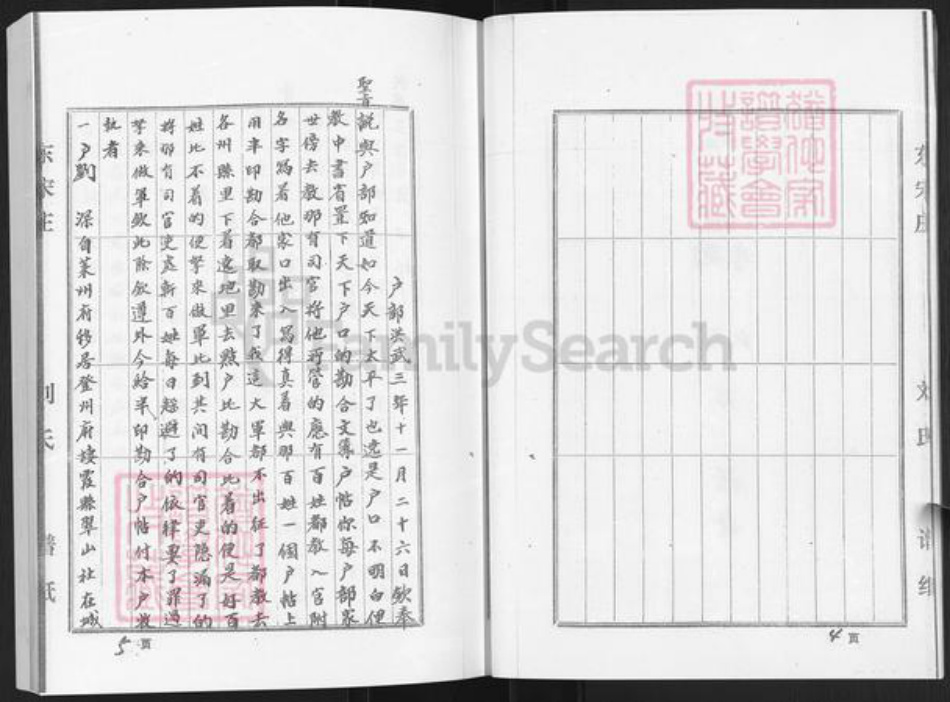 户部洪武三年十一月二十六日欽奉
聖旨說與户部知道如今天下太平了也逸是户口不明白便
教中書省置下天下户口的勘合文簿户帖你每户部家
世傍去教那有司官将他所管的應有百姓都教入官附
名字寫着他家口出入寫得真着與那百姓一個户帖上
用半印勘合都取勘来了我這大軍都不出征了都教去
各州縣里下着遶地里去點户比勘合比着的便是好百
姓比不着的便拏来做軍比到其间有司官吏隐漏了的
将那有司官吏處斬百姓每自趓避了的依律要了罪過
拏来做軍欽此除欽遵外今給半印勘合户帖付本户收
執者
一户劉　深自莱州府移居登州府棲霞縣翠山社在城
5 页
东宋庄
刘氏
谱纸
4 页
东宋庄
刘氏
谱纸
譜學會
收藏
FamilySearch